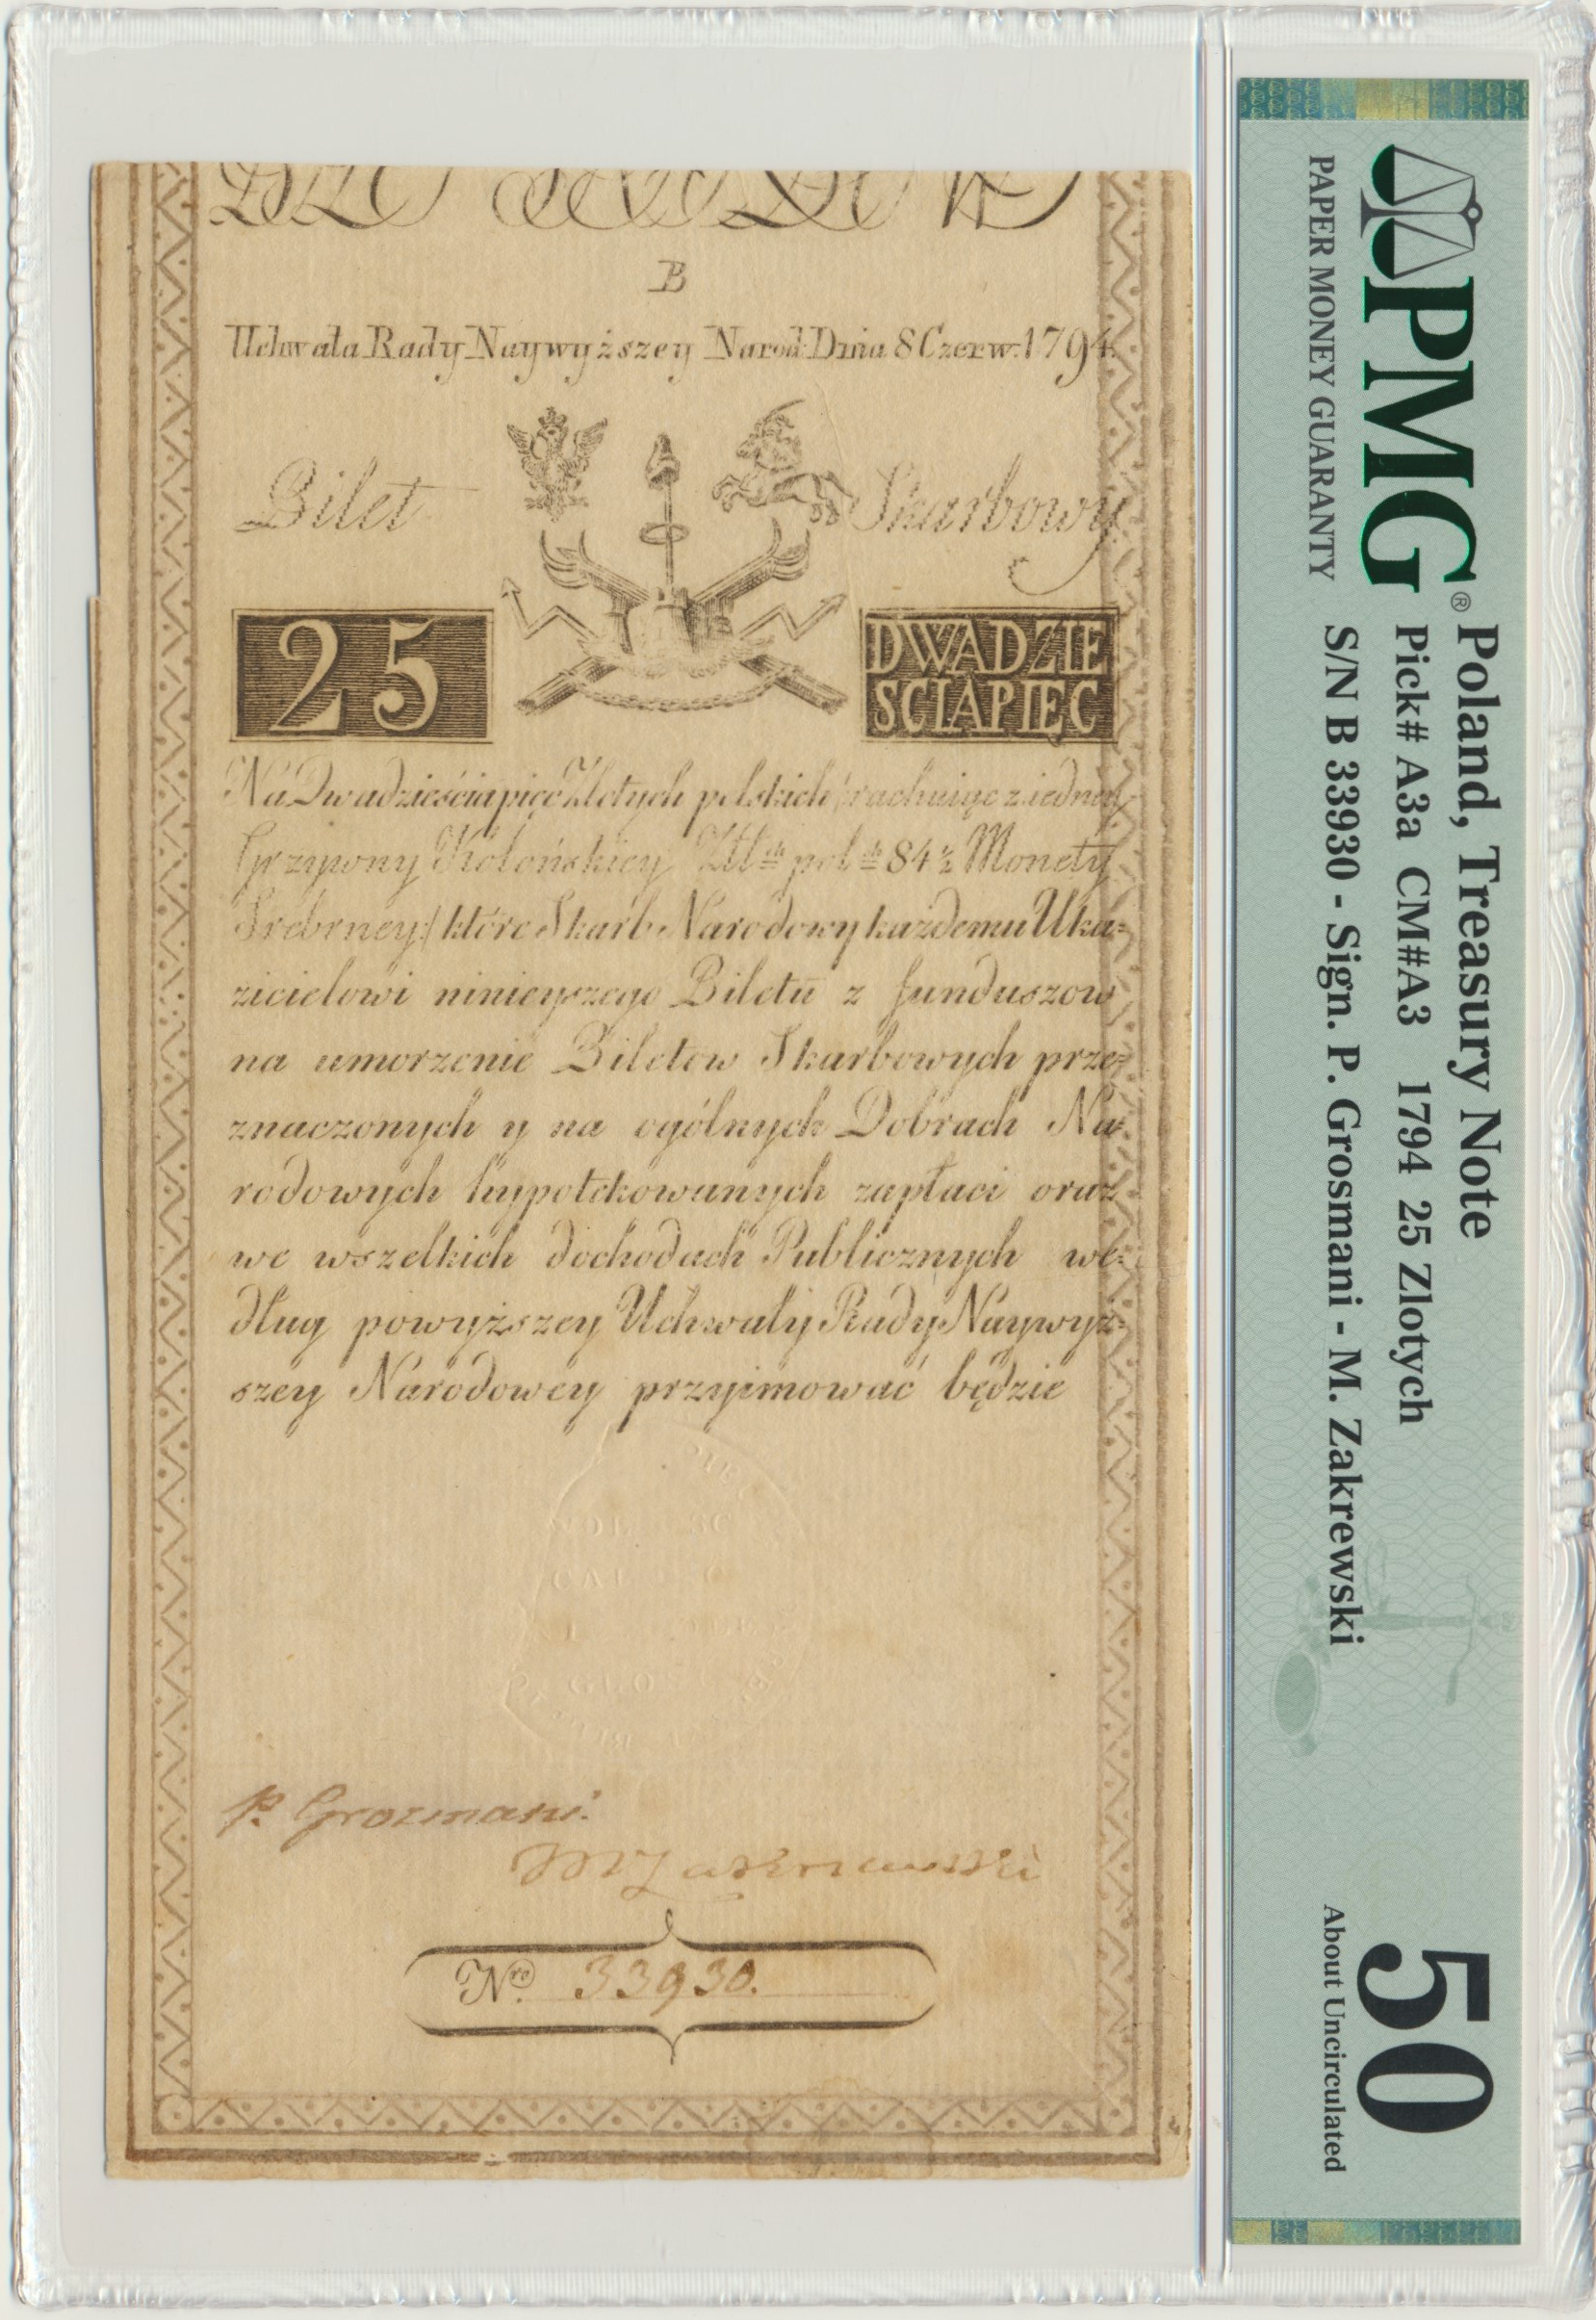 B
Uchwała Rady Naywyższey Narod: Dnia 8 Czerw: 1794.
Bilet Skarbowy
25
DWADZIE
SCIAPIĘC
Na Dwadzieściapięć Złotych polskich/: rachuiąc z iedney
Grzywny Kolońskiey Zł: pol: 84 ½ Monety
Srebrney:/ które Skarb Narodowy każdemu Uka=
zicielowi ninieyszego Biletu z funduszow
na umorzenie Biletow Skarbowych prze=
znaczonych y na ogólnych Dobrach Na=
rodowych hypotekowanych zapłaci oraz
we wszelkich dochodach Publicznych we=
dług powyższey Uchwały Rady Naywyż=
szey Narodowey przyimować będzie
P. Grosmani.
MZakrzewski
Nro. 33930.
PMG®
PAPER MONEY GUARANTY
Poland, Treasury Note
Pick# A3a CM#A3 1794 25 Zlotych
S/N B 33930 - Sign. P. Grosmani - M. Zakrewski
50
About Uncirculated